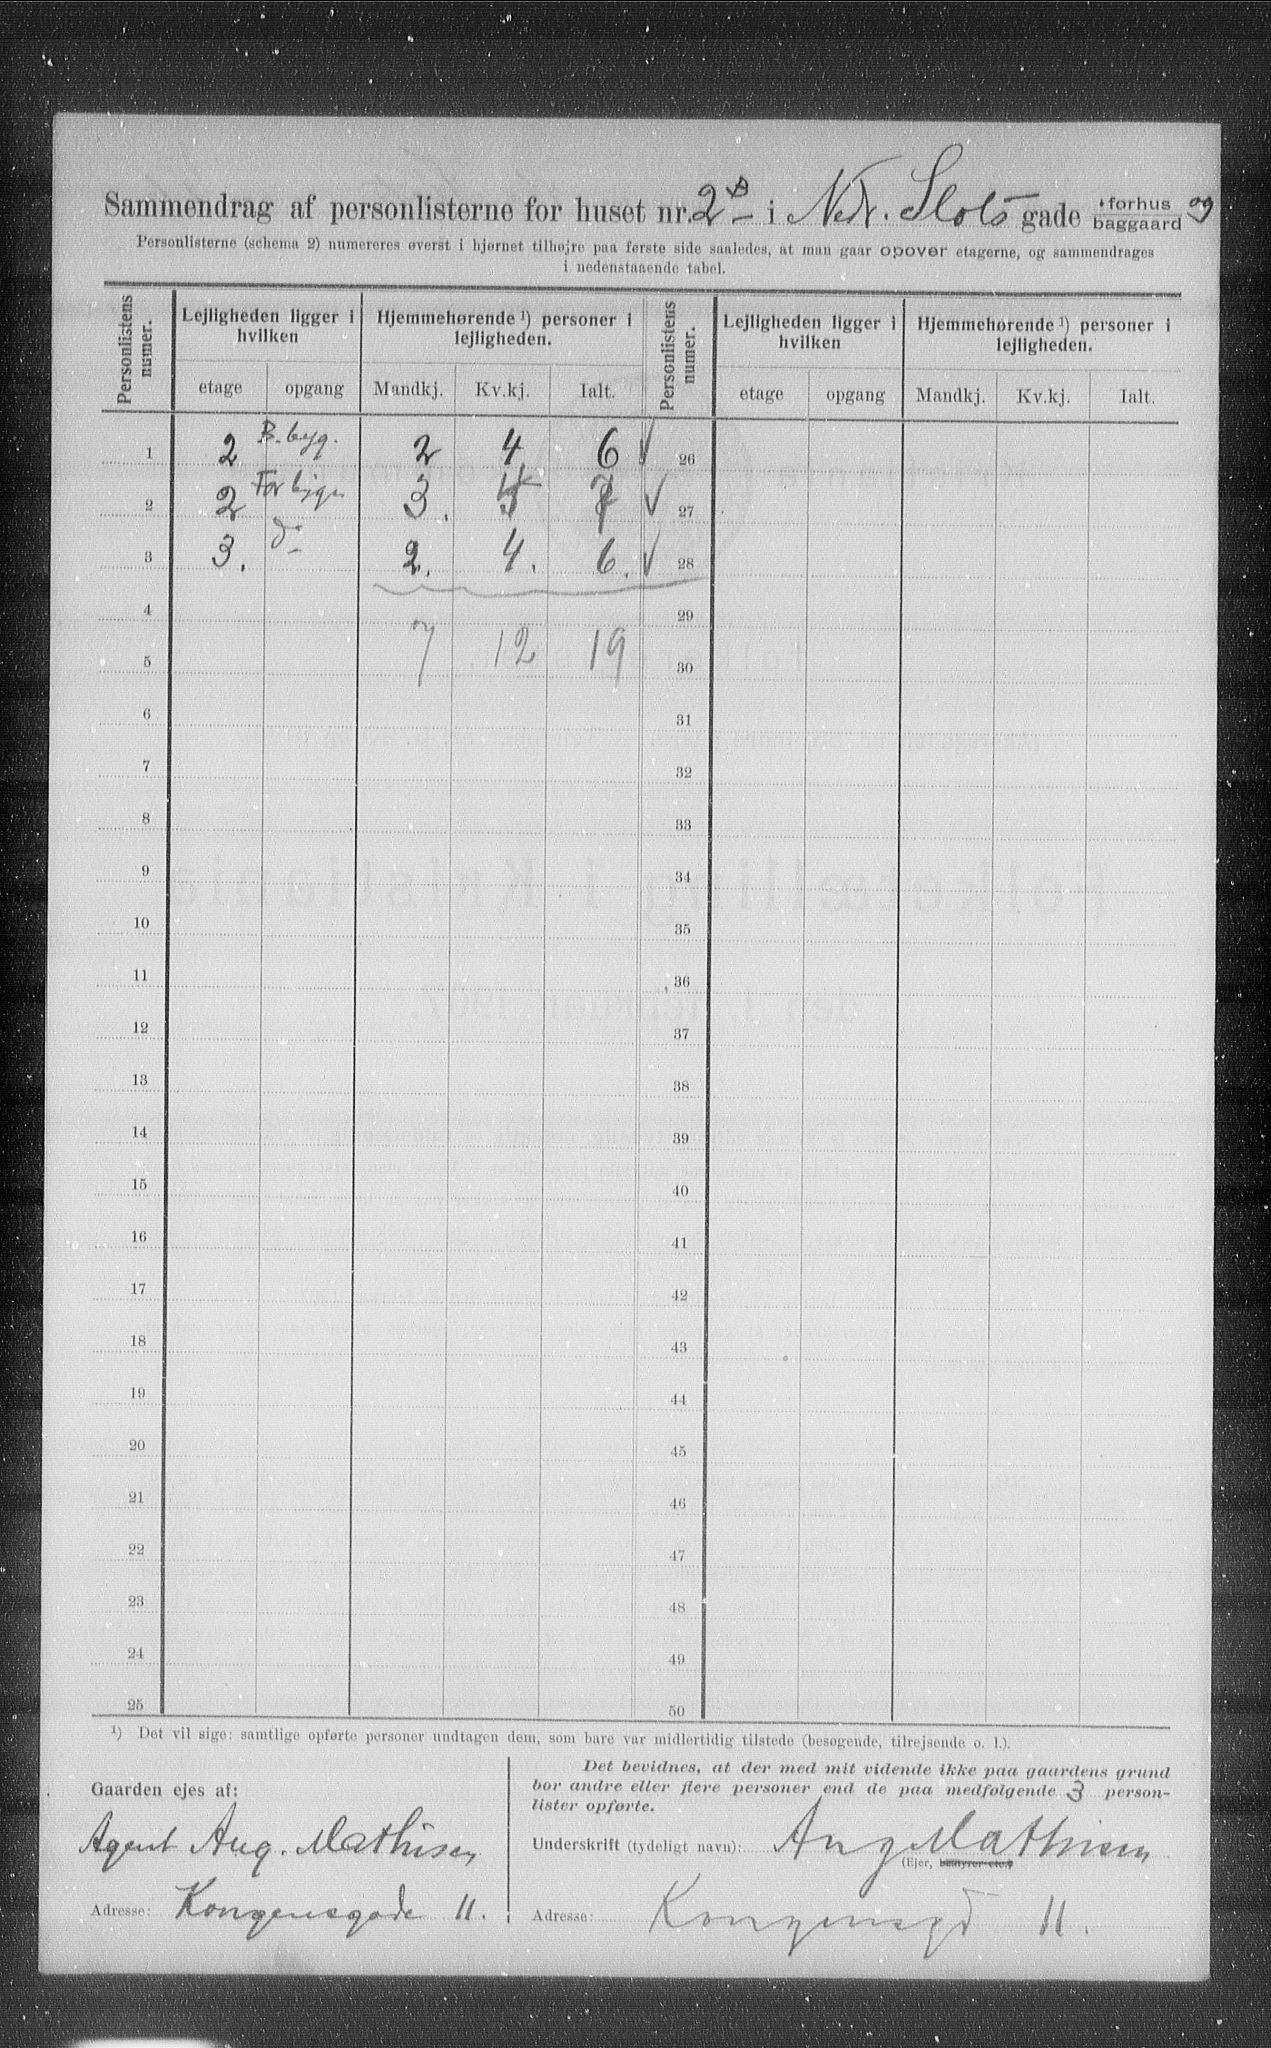 Sammendrag af personlisterne for huset nr. 2 B i Nedr. Slots gade + forhus og baggaard
Personlisterne (schema 2) numereres øverst i hjørnet tilhøjre paa første side saaledes, at man gaar opover etagerne, og sammendrages
i nedenstaaende tabel.
Personlistens numer. Lejligheden ligger i hvilken Hjemmehørende ¹) personer i lejligheden. Personlistens numer. Lejligheden ligger i hvilken Hjemmehørende ¹) personer i lejligheden.
etage opgang Mandkj. Kv.kj. Ialt. etage opgang Mandkj. Kv.kj. Ialt.
1 2 B. byg. 2 4 6 √ 26
2 2 For bygn 3. 4 7 √ 27
3 3. do 2. 4. 6. √ 28
4 29
5 7 12 19 30
6 31
7 32
8 33
9 34
10 35
11 36
12 37
13 38
14 39
15 40
16 41
17 42
18 43
19 44
20 45
21 46
22 47
23 48
24 49
25 50
¹) Det vil sige: samtlige opførte personer undtagen dem, som bare var midlertidig tilstede (besøgende, tilrejsende o. l.).
Gaarden ejes af:
Agent Aug. Mathisen
Adresse: Kongensgade 11.
Det bevidnes, at der med mit vidende ikke paa gaardens grund
bor andre eller flere personer end de paa medfølgende 3 person-
lister opførte.
Underskrift (tydeligt navn): Aug Mathisen
(Ejer, bestyrer etc.)
Adresse: Kongensgd 11.